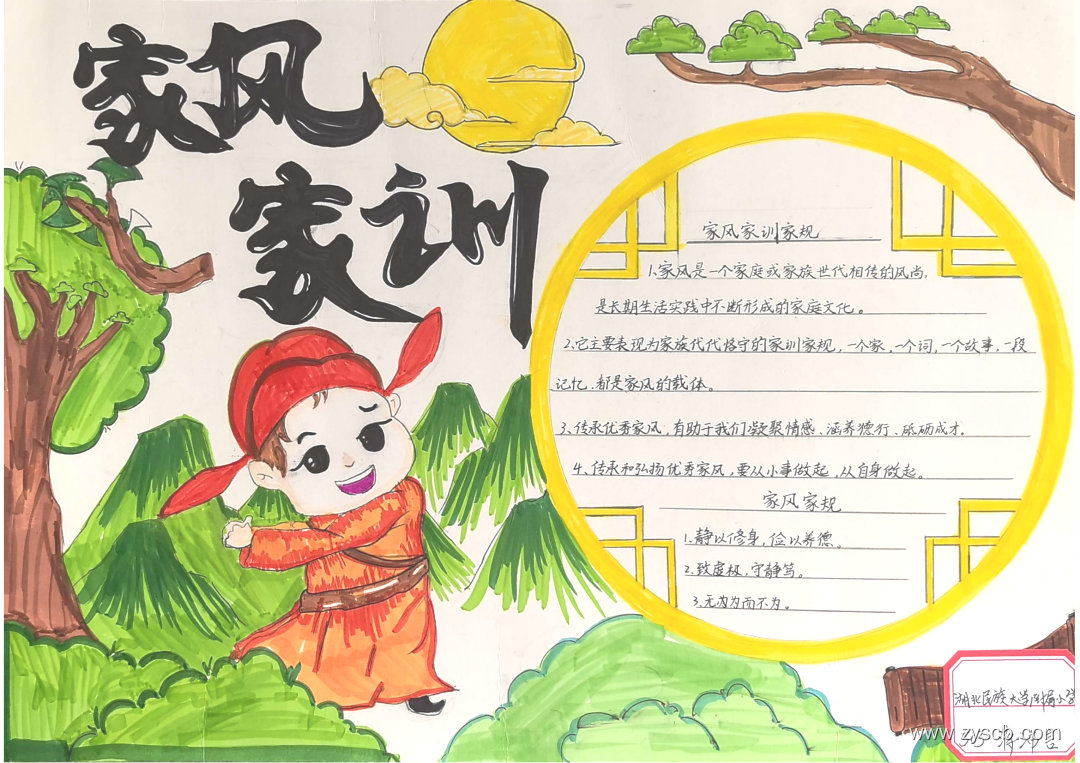 家风
家训
家风家训家规
1.家风是一个家庭或家族世代相传的风尚,
是长期生活实践中不断形成的家庭文化。
2.它主要表现为家族代代恪守的家训家规,一个家,一个词,一个故事,一段
记忆,都是家风的载体。
3.传承优秀家风,有助于我们凝聚情感、涵养德行、砥砺成才.
4.传承和弘扬优秀家风,要从小事做起,从自身做起。
家风家规
1.静以修身,俭以养德。
2.致虚极,守静笃。
3.无为为而不为。
湖北民族大学附属小学
www.zyscb.com